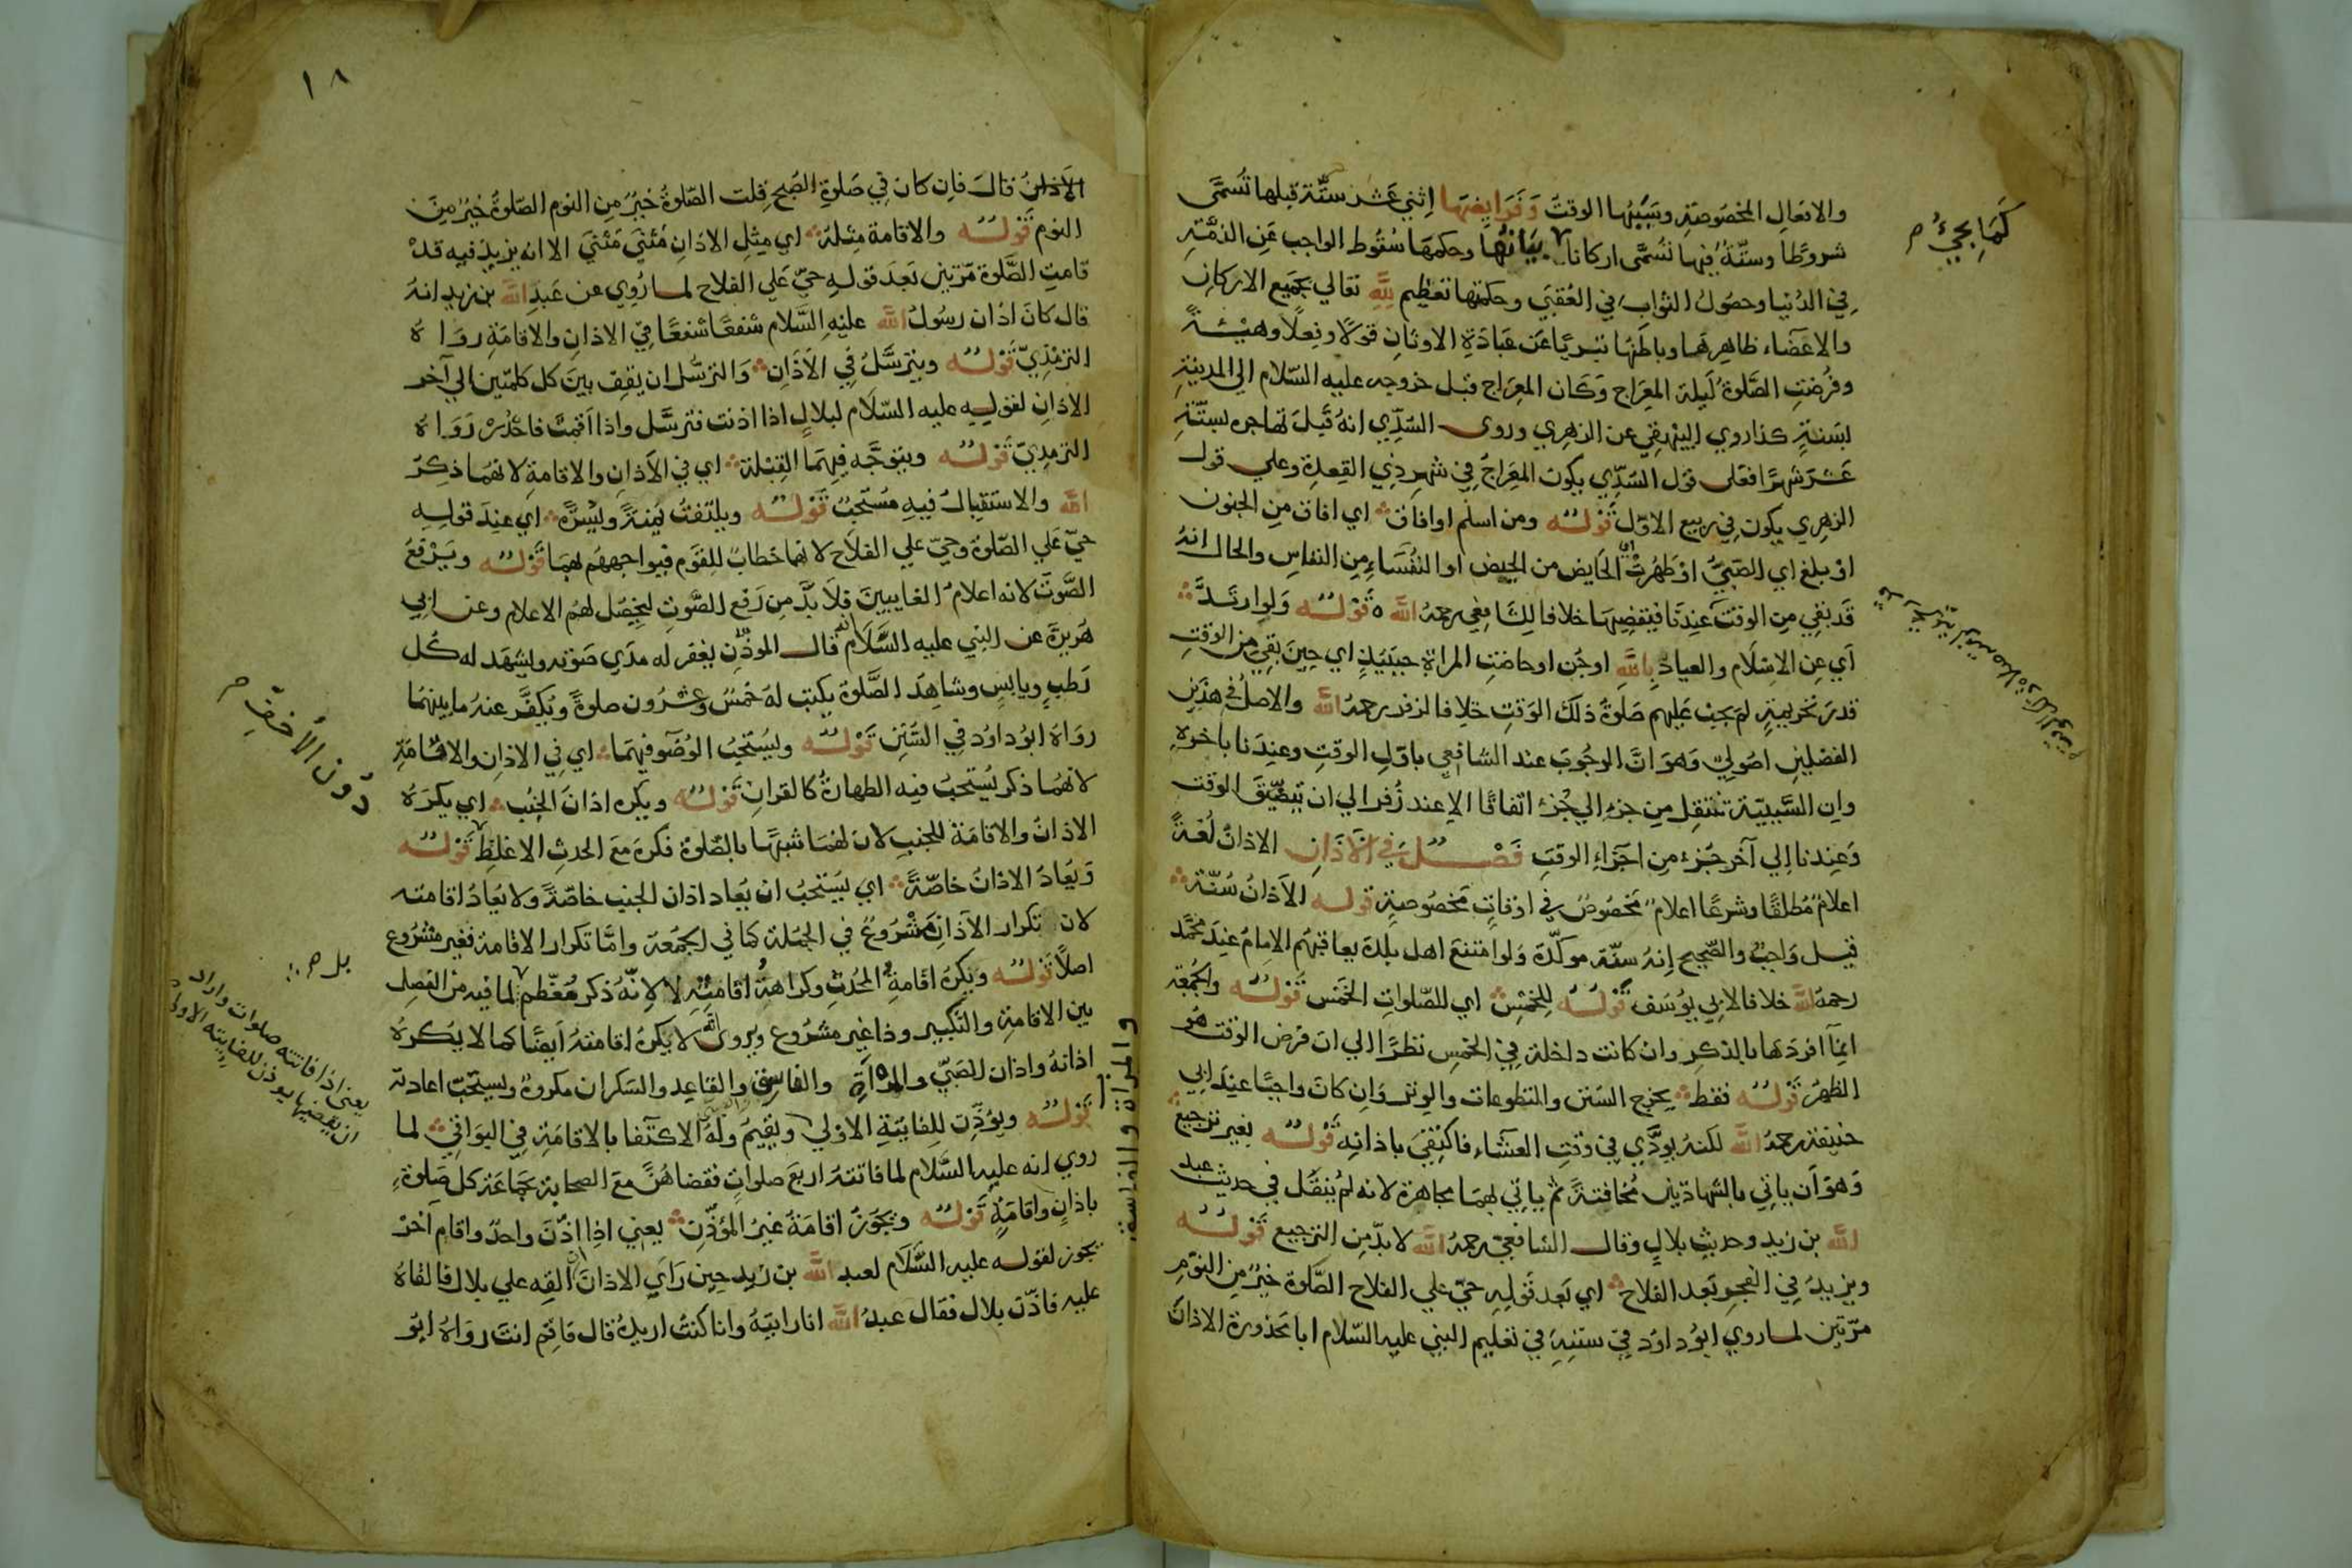 والافعال المخصوصة وسببها الوقت وفرايضها اثني عشر ستة قبلها تسمى
شروطا وستة فيها تسمى اركانا بيانها وحكمها سقوط الواجب عن الذمة
في الدنيا وحصول الثواب في العقبى وحكمتها تعظيم لله تعالي بجميع الاركان
والاعضاء ظاهرها وباطنها تبريا عن عبادة الاوثان قولا وفعلا وهيئة
وفرضت الصلوة ليلة المعراج وكان المعراج قبل خروجه عليه السلام الى المدينة
بسنة كذا روي البيهقي عن الزهري وروى السدي انه قبل مهاجره بستة
عشر شهرا فعلى قول السدي يكون المعراج في شهر ذي القعدة وعلي قول
الزهري يكون في ربيع الاول قوله ومن اسلم او افاق اي افاق من الجنون
او بلغ اي الصبي او طهرت اي الحايض من الحيض او النفساء من النفاس والحال انه
قد بقي من الوقت عندنا فيقضيها خلافا للشافعي رحمه الله قوله ولو ارتد
اي عن الاسلام والعياذ بالله او جن او حاضت المراة حينئذ اي حين بقي من الوقت
قدر تحريمة لم يجب عليهم صلوة ذلك الوقت خلافا لزفر رحمه الله والاصل في هذين
الفصلين اصولي وهو ان الوجوب عند الشافعي باول الوقت وعندنا باخره
وان السببية تنتقل من جزء الي جزء اتفاقا الا عند زفر الي ان يتضيق الوقت
وعندنا الي آخر جزء من اجزاء الوقت فصل في الاذان الاذان لغة
اعلام مطلقا وشرعا اعلام مخصوص في اوقات مخصوصة قوله الاذان سنة
قيل واجب والصحيح انه سنة موكدة ولو امتنع اهل بلدة يعاقبهم الامام عند محمد
رحمه الله خلافا لابي يوسف قوله للخمس اي للصلوات الخمس قوله والجمعة
انما افردها بالذكر وان كانت داخلة في الخمس نظرا الي ان فرض الوقت هو
الظهر قوله فقط يخرج السنن والتطوعات والوتر وان كان واجبا عند ابي
حنيفة رحمه الله لكنه يودي في وقت العشاء فاكتفي باذانه قوله بغير ترجيع
وهو ان ياتي بالشهادتين مخافتة ثم ياتي بهما مجاهرة لانه لم ينقل في حديث عبد
الله بن زيد وحديث بلال وقال الشافعي رحمه الله لا بد من الترجيع قوله
ويزيد في الفجر بعد الفلاح اي بعد قوله حي علي الفلاح الصلوة خير من النوم
مرتين لما روي ابو داود في سننه في تعليم النبي عليه السلام ابا محذورة الاذان
كما يجيء م
١٨
الاذان قال فان كان في صلوة الصبح قلت الصلوة خير من النوم الصلوة خير من
النوم قوله والاقامة مثله اي مثل الاذان مثنى مثنى الا انه يزيد فيه قد
قامت الصلوة مرتين بعد قوله حي علي الفلاح لما روي عن عبد الله بن زيد انه
قال كان اذان رسول الله عليه السلام شفعا شفعا في الاذان والاقامة رواه
الترمذي قوله ويترسل في الاذان والترسل ان يقف بين كل كلمتين الي آخر
الاذان لقوله عليه السلام لبلال اذا اذنت فترسل واذا اقمت فاحدر رواه
الترمذي قوله ويتوجه فيهما القبلة اي في الاذان والاقامة لانهما ذكر
الله والاستقبال فيه مستحب قوله ويلتفت يمنة ويسرة اي عند قوله
حي علي الصلوة وحي علي الفلاح لانهما خطاب للقوم فيواجههم بهما قوله ويرفع
الصوت لانه اعلام الغايبين فلا بد من رفع الصوت ليحصل لهم الاعلام وعن ابي
هريرة عن النبي عليه السلام انه قال الموذن يغفر له مدي صوته ويشهد له كل
رطب ويابس وشاهد الصلوة يكتب له خمس وعشرون صلوة ويكفر عنه ما بينهما
رواه ابو داود في السنن قوله ويستحب الوضوء فيهما اي في الاذان والاقامة
لانهما ذكر يستحب فيه الطهارة كالقران قوله ويكره اذان الجنب اي يكره
الاذان والاقامة للجنب لان لهما شبها بالصلوة فكره مع الحدث الاغلظ قوله
ويعاد الاذان خاصة اي يستحب ان يعاد اذان الجنب خاصة ولا يعاد اقامته
لان تكرار الاذان مشروع في الجملة كما في الجمعة واما تكرار الاقامة فغير مشروع
اصلا قوله ويكره اقامة المحدث وكراهة اقامته لا لانه ذكر معظم لما فيه من الفصل
بين الاقامة والتكبير وذا غير مشروع ويروى انه لا يكره اقامته ايضا كما لا يكره
اذانه واذان الصبي والمراة والفاسق والقاعد والسكران مكروه ويستحب اعادته
قوله ويؤذن للفايتة الاولي ويقيم وله الاكتفا بالاقامة في البواقي لما
روي انه عليه السلام لما فاتته اربع صلوات فقضاهن مع الصحابة بجماعة كل صلوة
باذان واقامة قوله ويجوز اقامة غير المؤذن يعني اذا اذن واحد واقام آخر
يجوز لقوله عليه السلام لعبد الله بن زيد حين راي الاذان القه علي بلال فالقاه
عليه فاذن بلال فقال عبد الله انا رايته وانا كنت اريده قال فاقم انت رواه ابو
دون الاخف م
بل م
يعني اذا فاتته صلوات واراد
ان يقضيها يوذن للفايتة الاولى